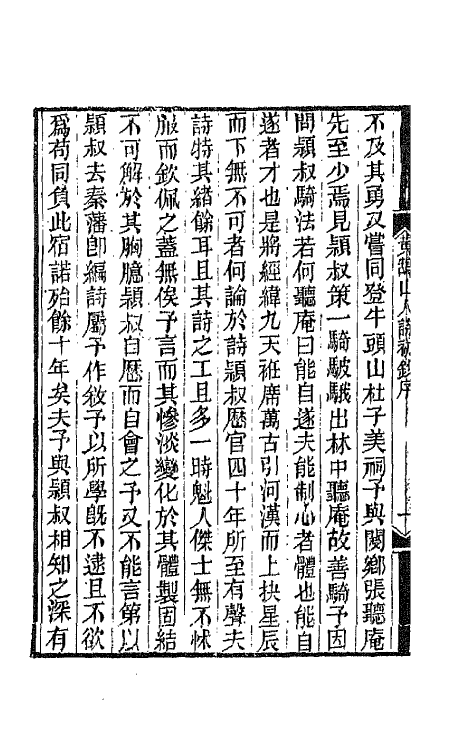 不及其勇又嘗同登牛頭山杜子美祠予與閿鄉張聽庵
先至少焉見穎叔策一騎駊騀出林中聽庵故善騎予因
問穎叔騎法若何聽庵曰能自遂夫能制心者體也能自
遂者才也是將經緯九天袵席萬古引河漢而上抉星辰
而下無不可者何論於詩穎叔歷官四十年所至有聲夫
詩特其緒餘耳且其詩之工且多一時魁人傑士無不怵
服而欽佩之蓋無俟予言而其慘淡變化於其體製固結
不可解於其胸臆穎叔自歷而自會之予又不能言第以
穎叔去秦藩卽編詩屬予作敘予以所學旣不逮且不欲
爲苟同負此宿諾殆餘十年矣夫予與穎叔相知之深有
黃鵠山人詩初鈔序